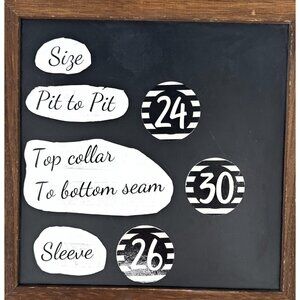 Size
Pit to Pit
24
Top collar
To bottom seam
30
Sleeve
26